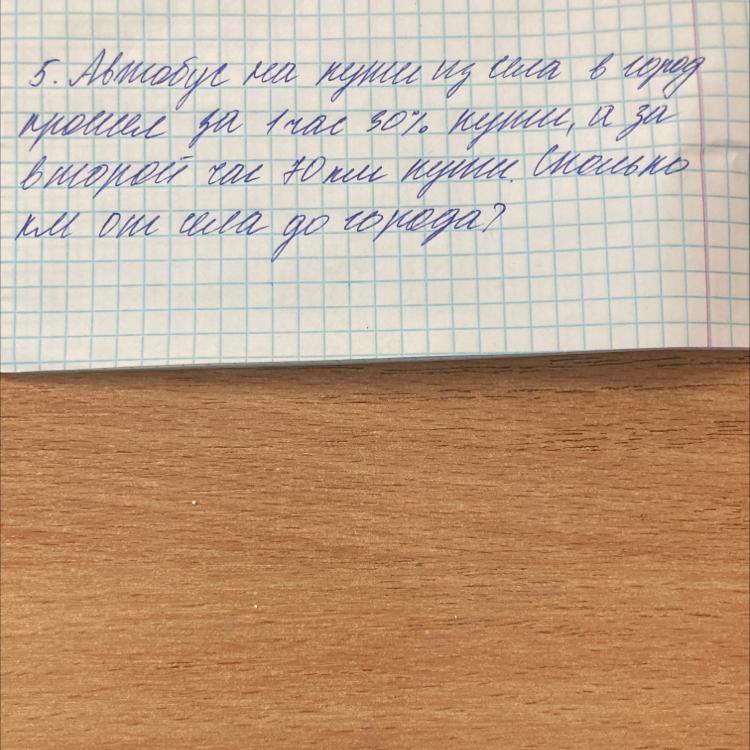 5. Автобус на пути из села в город
прошел за 1 час 30% пути, а за
второй час 70 км пути. Сколько
км от села до города?